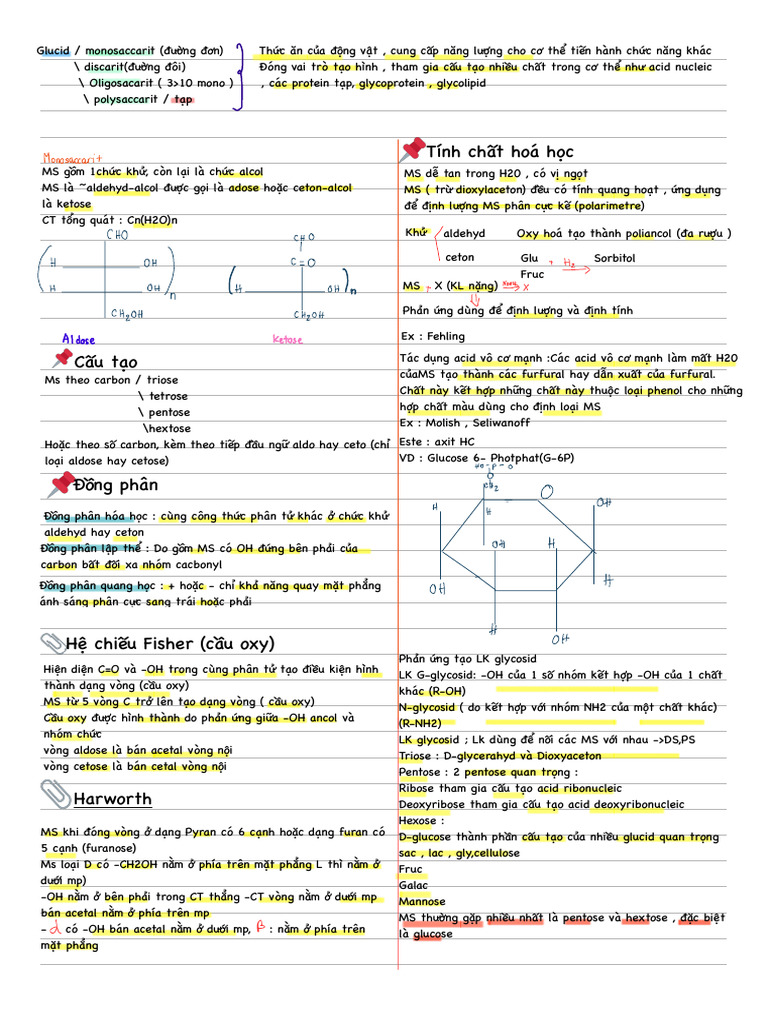 Glucid / monosaccarit (đường đơn)
\ discarit(đường đôi)
\ Oligosacarit ( 3>10 mono )
\ polysaccarit / tạp
Thức ăn của động vật , cung cấp năng lượng cho cơ thể tiến hành chức năng khác
Đóng vai trò tạo hình , tham gia cấu tạo nhiều chất trong cơ thể như acid nucleic
, các protein tạp, glycoprotein , glycolipid
Monosaccarit
MS gồm 1chức khử, còn lại là chức alcol
MS là ~aldehyd-alcol được gọi là adose hoặc ceton-alcol
là ketose
CT tổng quát : Cn(H2O)n
CHO
H OH
H OH
n
CH2OH
Aldose
CHO
C=O
H OH
n
CH2OH
Ketose
Cấu tạo
Ms theo carbon / triose
\ tetrose
\ pentose
\hextose
Hoặc theo số carbon, kèm theo tiếp đầu ngữ aldo hay ceto (chỉ
loại aldose hay cetose)
Đồng phân
Đồng phân hóa học : cùng công thức phân tử khác ở chức khử
aldehyd hay ceton
Đồng phân lập thể : Do gồm MS có OH đứng bên phải của
carbon bất đối xa nhóm cacbonyl
Đồng phân quang học : + hoặc - chỉ khả năng quay mặt phẳng
ánh sáng phân cực sang trái hoặc phải
Hệ chiếu Fisher (cầu oxy)
Hiện diện C=O và -OH trong cùng phân tử tạo điều kiện hình
thành dạng vòng (cầu oxy)
MS từ 5 vòng C trở lên tạo dạng vòng ( cầu oxy)
Cầu oxy được hình thành do phản ứng giữa -OH ancol và
nhóm chức
vòng aldose là bán acetal vòng nội
vòng cetose là bán cetal vòng nội
Harworth
MS khi đóng vòng ở dạng Pyran có 6 cạnh hoặc dạng furan có
5 cạnh (furanose)
Ms loại D có -CH2OH nằm ở phía trên mặt phẳng L thì nằm ở
dưới mp)
-OH nằm ở bên phải trong CT thẳng -CT vòng nằm ở dưới mp
bán acetal nằm ở phía trên mp
- α có -OH bán acetal nằm ở dưới mp, β : nằm ở phía trên
mặt phẳng
Tính chất hoá học
MS dễ tan trong H20 , có vị ngọt
MS ( trừ dioxylaceton) đều có tính quang hoạt , ứng dụng
để định lượng MS phân cực kế (polarimetre)
Khử aldehyd Oxy hoá tạo thành poliancol (đa rượu )
ceton Glu + H2 Sorbitol
Fruc
MS + X (KL nặng) X
Phản ứng dùng để định lượng và định tính
Ex : Fehling
Tác dụng acid vô cơ mạnh :Các acid vô cơ mạnh làm mất H20
củaMS tạo thành các furfural hay dẫn xuất của furfural.
Chất này kết hợp những chất này thuộc loại phenol cho những
hợp chất màu dùng cho định loại MS
Ex : Molish , Seliwanoff
Este : axit HC
VD : Glucose 6- Photphat(G-6P)
O
CH2
O
H
H
OH
OH
H
OH
H
H
OH
Phản ứng tạo LK glycosid
LK G-glycosid: -OH của 1 số nhóm kết hợp -OH của 1 chất
khác (R-OH)
N-glycosid ( do kết hợp với nhóm NH2 của một chất khác)
(R-NH2)
LK glycosid ; Lk dùng để nối các MS với nhau ->DS,PS
Triose : D-glycerahyd và Dioxyaceton
Pentose : 2 pentose quan trọng :
Ribose tham gia cấu tạo acid ribonucleic
Deoxyribose tham gia cấu tạo acid deoxyribonucleic
Hexose :
D-glucose thành phần cấu tạo của nhiều glucid quan trọng
sac , lac , gly,cellulose
Fruc
Galac
Mannose
MS thường gặp nhiều nhất là pentose và hextose , đặc biệt
là glucose